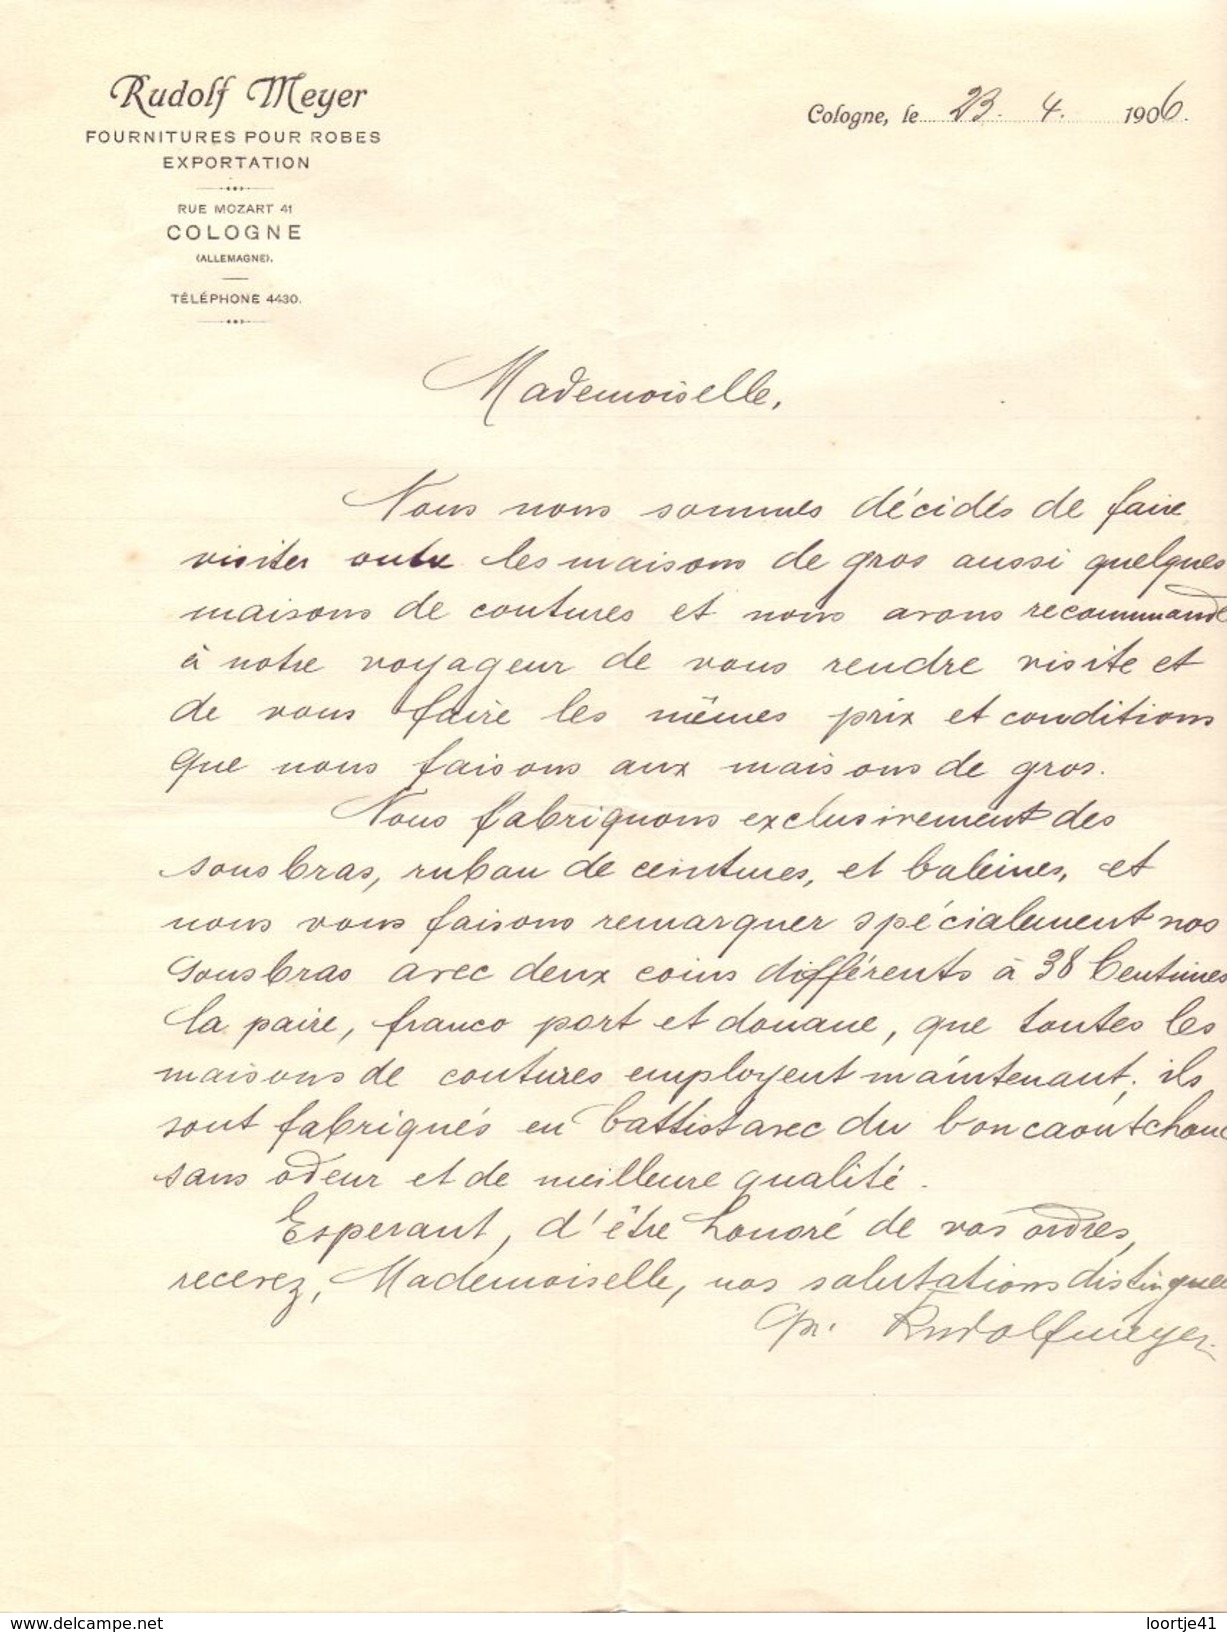 Rudolf Meyer
FOURNITURES POUR ROBES
EXPORTATION
RUE MOZART 41
COLOGNE
(ALLEMAGNE).
TÉLÉPHONE 4430.
Cologne, le 23. 4. 1906.
Mademoiselle,
Nous nous sommes décidés de faire
visiter outre les maisons de gros aussi quelques
maisons de coutures et nous avons recommandé
à notre voyageur de vous rendre visite et
de vous faire les mêmes prix et conditions
que nous faisons aux maisons de gros.
Nous fabriquons exclusivement des
sousbras, ruban de ceintures, et baleines, et
nous vous faisons remarquer spécialement nos
sousbras avec deux coins différents à 38 Centimes
la paire, franco port et douane, que toutes les
maisons de coutures employent maintenant; ils
sont fabriqués en battist avec du bon caoutchouc
sans odeur et de meilleure qualité.
Esperant, d'être honoré de vos ordres,
recevez, Mademoiselle, nos salutations distinguées
Rudolf Meyer.
www.delcampe.net
loortje41